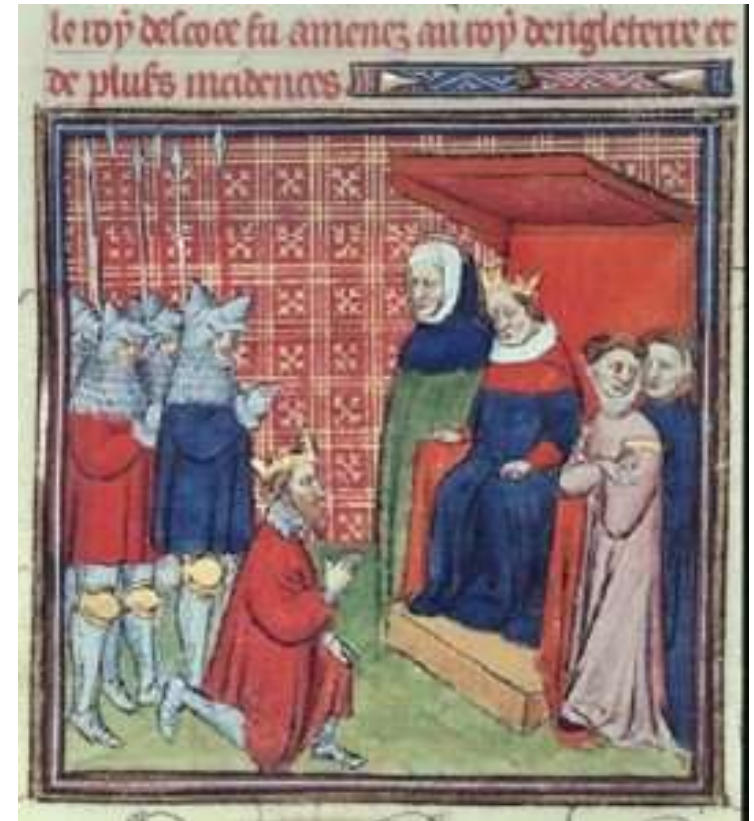 le roy descoce fu amenez au roy dengleterre et
de plus's incidences